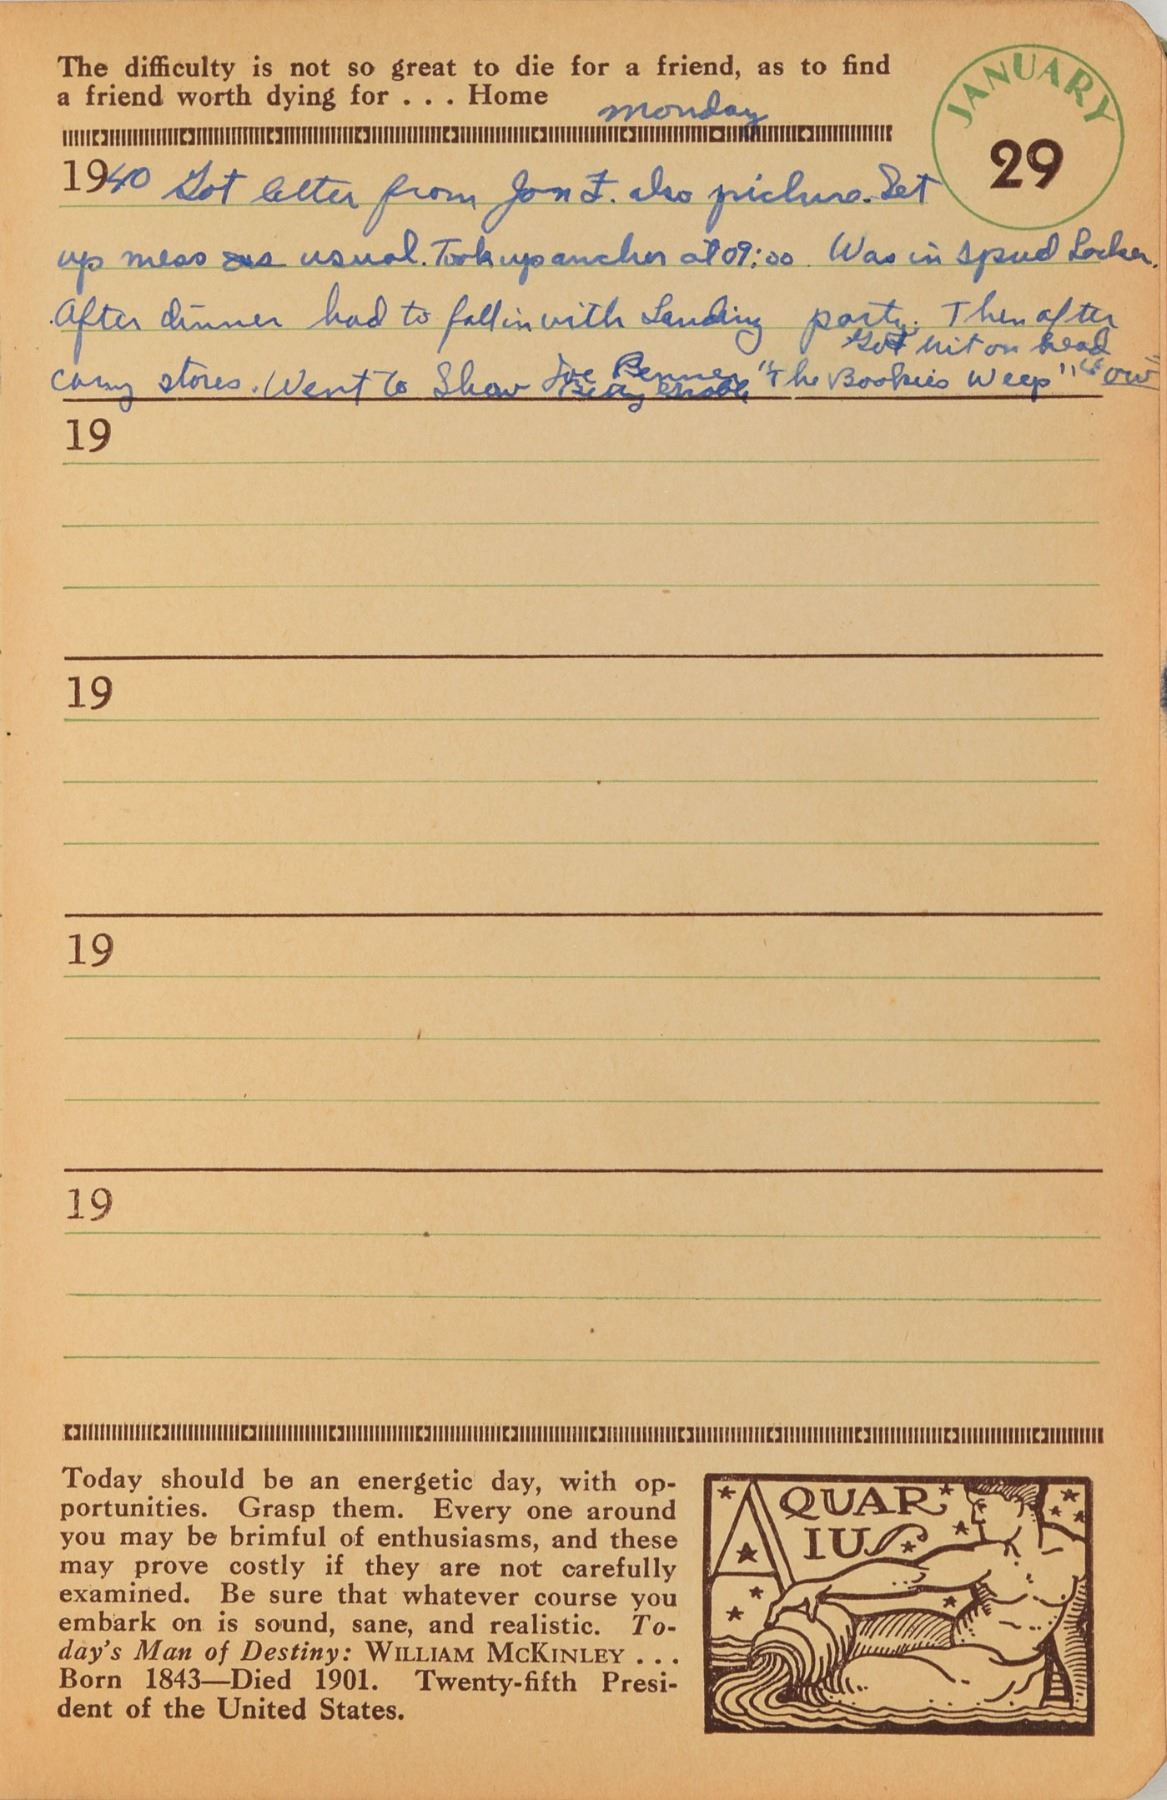 The difficulty is not so great to die for a friend, as to find
a friend worth dying for . . . Home
monday
JANUARY
29
1940 Got letter from Jon F. also picture. Set
up mess as usual. Took up ancher at 09:00. Was in Spud Locker.
After dinner had to fall in with Landing party. Then after
Got hit on head
carry stores. Went to Show Joe Penner "The Bookies Weep" "ow"
19
19
19
19
Today should be an energetic day, with op-
portunities. Grasp them. Every one around
you may be brimful of enthusiasms, and these
may prove costly if they are not carefully
examined. Be sure that whatever course you
embark on is sound, sane, and realistic. To-
day's Man of Destiny: WILLIAM MCKINLEY . . .
Born 1843—Died 1901. Twenty-fifth Presi-
dent of the United States.
AQUAR
IUS